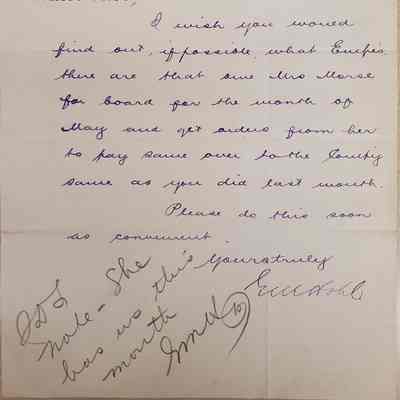 I wish you would
find out, if possible, what Emp'es
there are that owe Mrs Morse
for board for the month of
May and get orders from her
to pay same over to the Comp'y
same as you did last month.
Please do this soon
as convenient.
Yours truly
Note - She
has us this
month